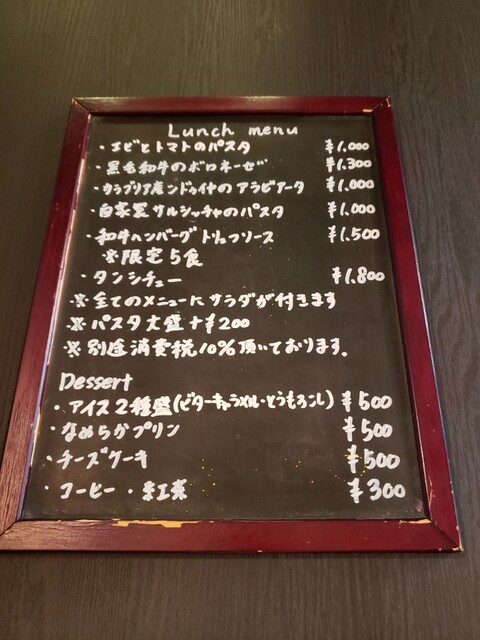 Lunch menu
・エビとトマトのパスタ ¥1.000
・黒毛和牛のボロネーゼ ¥1.300
・カラブリア産ンドゥイヤのアラビアータ ¥1.000
・自家製サルシッチャのパスタ ¥1.000
・和牛ハンバーグトリュフソース ¥1.500
※限定5食
・タンシチュー ¥1.800
※全てのメニューにサラダが付きます
※パスタ大盛+¥200
※別途消費税10%頂いております。
Dessert
・アイス2種盛(ビターキャラメル・とうもろこし) ¥500
・なめらかプリン ¥500
・チーズケーキ ¥500
・コーヒー・紅茶 ¥300